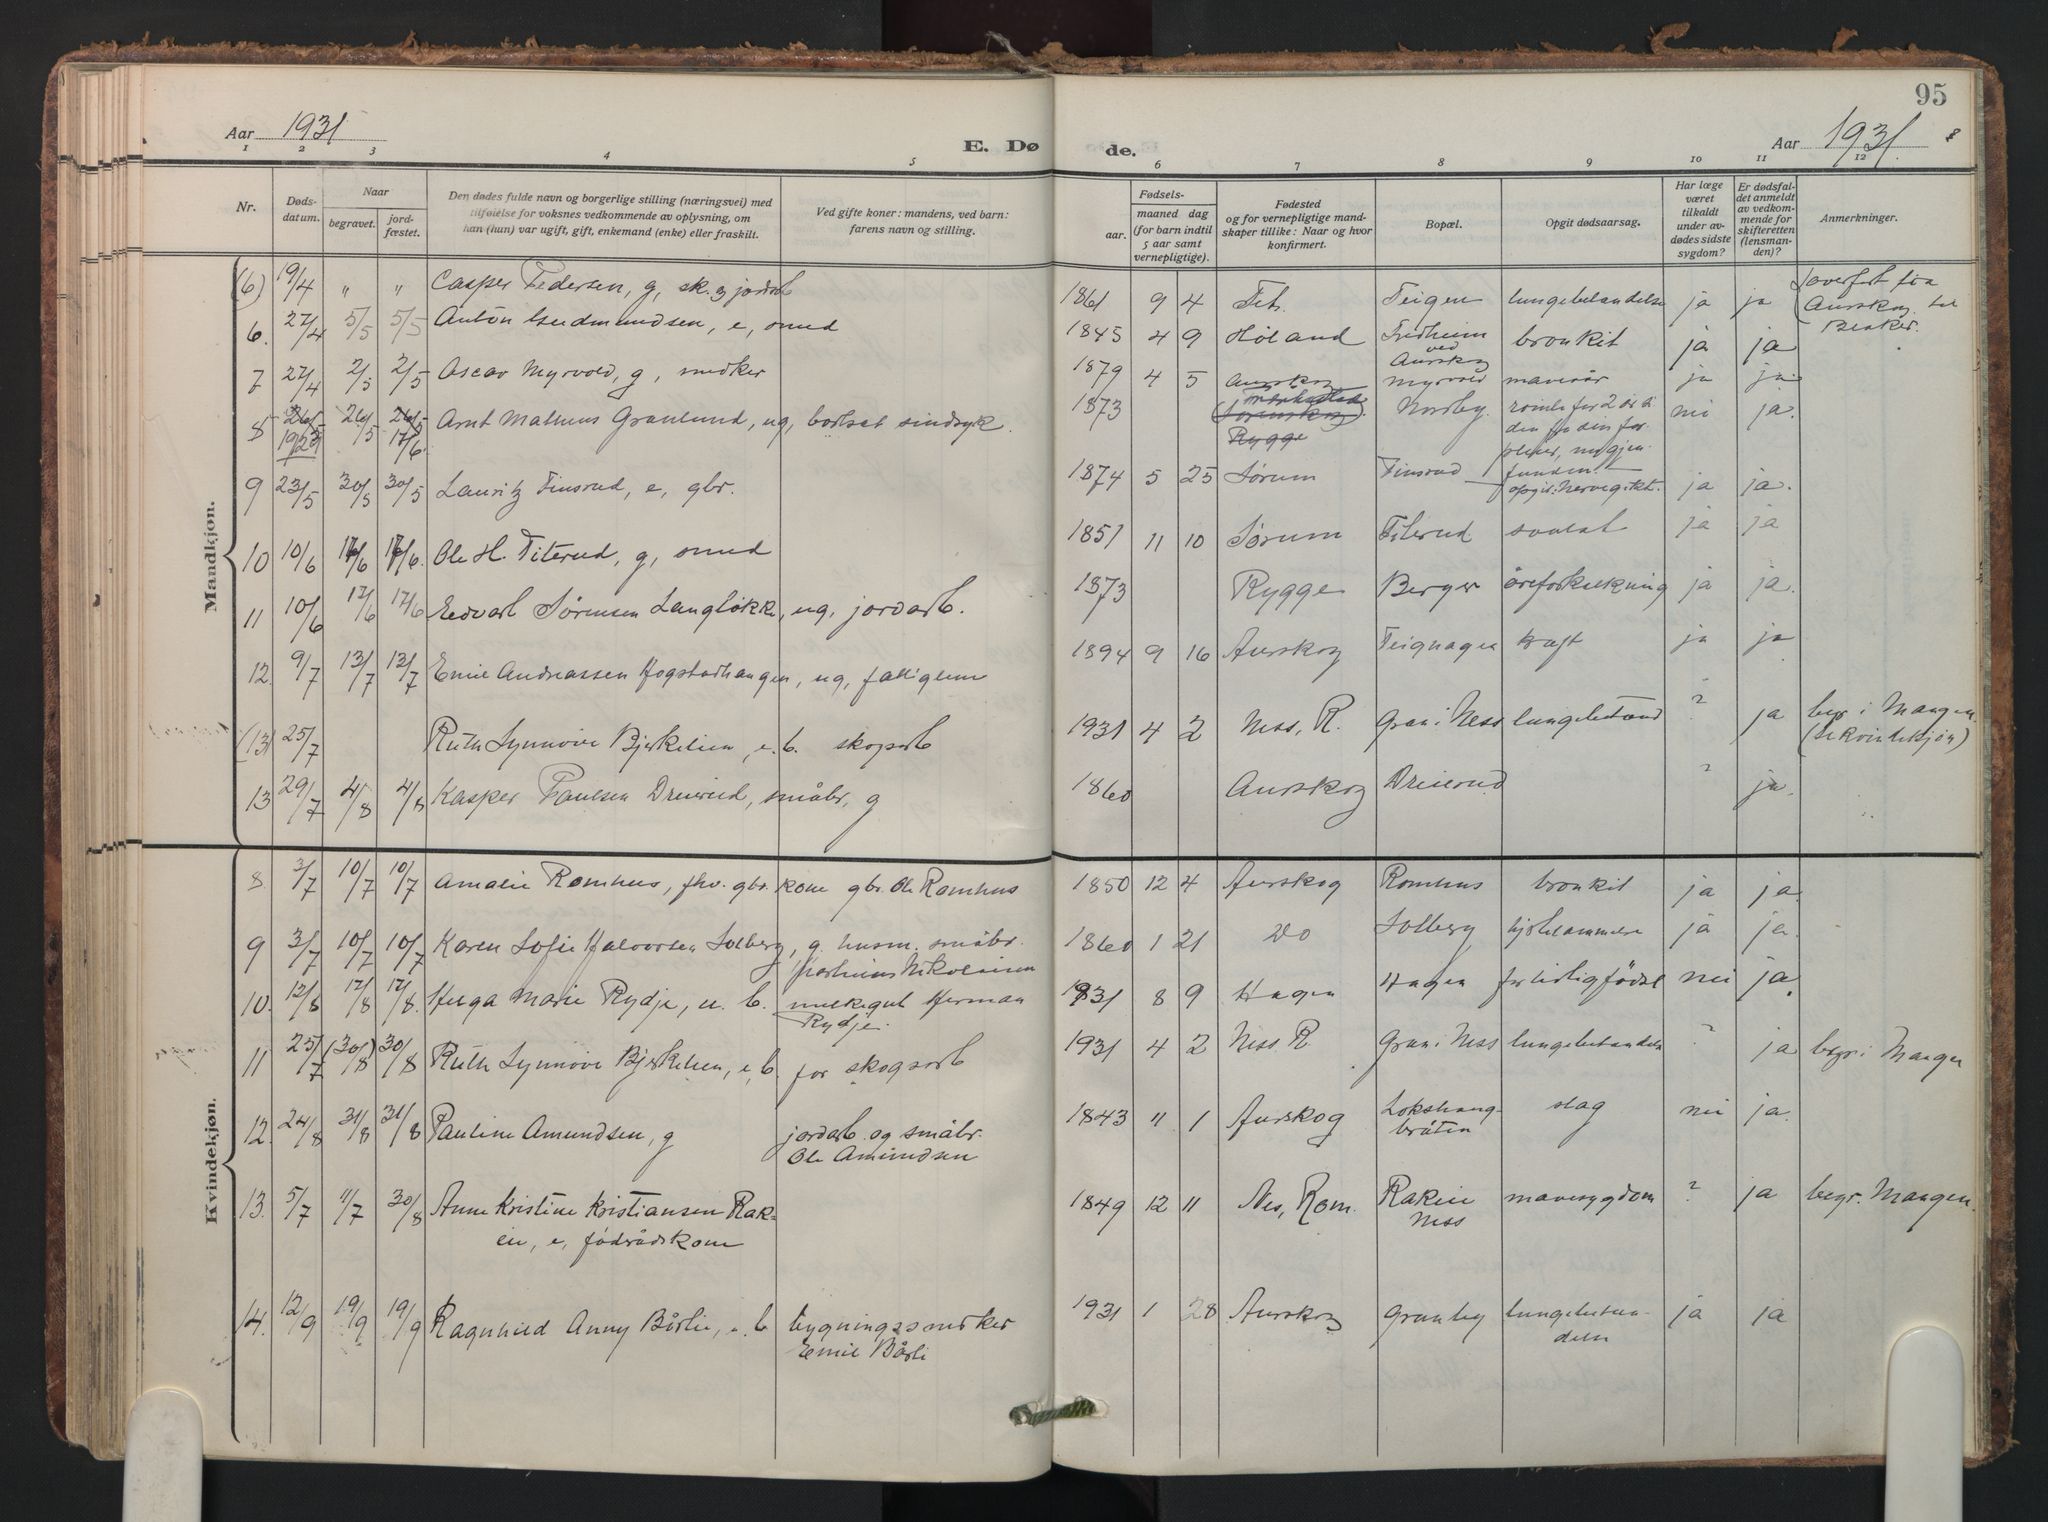 95
Aar 1931
E. Døde.
Aar 1931.
1 2 3 4 5 6 7 8 9 10 11 12
Nr.
Døds-
datum.
Naar
begravet.
jord-
fæstet.
Den dødes fulde navn og borgerlige stilling (næringsvei) med
tilføielse for voksnes vedkommende av oplysning, om
han (hun) var ugift, gift, enkemand (enke) eller fraskilt.
Ved gifte koner: mandens, ved barn:
farens navn og stilling.
Fødsels-
aar.
maaned dag
(for barn indtil
5 aar samt
vernepligtige).
Fødested
og for vernepligtige mand-
skaper tillike: Naar og hvor
konfirmert.
Bopæl.
Opgit dødsaarsag.
Har læge
været
tilkaldt
under av-
dødes sidste
sygdom?
Er dødsfal-
det anmeldt
av vedkom-
mende for
skifteretten
(lensman-
den)?
Anmerkninger.
Mandkjøn.
(6) 19/4 " " Casper Pedersen, g, sk. og jordarb 1861 9 4 Fet. Teigen lungebetændelse ja ja overført fra
Aurskog til
Blaker.
6. 27/4 5/5 5/5 Anton Gudmundsen, e, smed 1845 4 9 Høland Fredheim
ved
Aurskog bronkit ja ja
7 27/4 2/5 2/5 Oscar Myrvold, g, snedker 1879 4 5 Aurskog Myrvold mavesår ja ja.
8 26/5
1929 26/5 26/5
17/6. Arnt Matheus Granlund, ug, bortsat sindsyk. 1873 (Sørumskog)
Rygge Nordby. nei ja.
9 23/5 30/5 30/5 Lauritz Finsrud, e, gbr. 1874 5 25 Sørum Finsrud ja ja.
10 10/6 17/6 17/6. Ole H. Titerud, g, smed 1851 11 10 Sørum Titerud ja ja
11 10/6 17/6 17/6 Edvart Sørensen Langløkke, ug, jordarb. 1873 Rygge Berger åreforkalkning ja ja.
12. 9/7 13/7 13/7 Emil Andreassen Hogstadhaugen, ug, fattiglem 1894 9 16 Aurskog ja ja
(13) 25/7 Ruth Synnøve Bjerkelien, e. b. skogsarb 1931 4 2 Ness, R. Gran i Ness lungebetænd ? ja begr. i Mangen.
(se kvindekjøn)
13 29/7 4/8 4/8 Kasper Paulsen Dreierud, småbr, g 1860 Aurskog Dreierud ? ja.
Kvindekjøn.
8. 3/7 10/7 10/7 Amalie Romhus, fhv. gbr. kone gbr. Ole Romhus 1850 12 4 Aurskog Romhus bronkit ja ja.
9 3/7 10/7 10/7 Karen Sofie Halvorsen Solberg, g. husm. småbr.
Nikolaisen 1860 1 21 Do Solberg hjertelammelse ja ja.
10. 12/8 17/8 17/8. Helga Marie Rydje, e. b. Herman
Rydje. 1931 8 9 Hagen Hagen for tidlig fødsel nei ja.
11 25/7 (30/8) 30/8 Ruth Synnøve Bjerkelien, e. b. far skogsarb 1931 4 2 Ness R Gran i Ness lungebetændelse ? ja begr. i Mangen
12. 24/8 31/8 31/8 Pauline Amundsen, g jordarb. og småbr.
Ole Amundsen 1843 11 1 Aurskog Lokshaug-
bråten slag nei ja.
13. 5/7 11/7 30/8 Anne Kristine Kristiansen Rak-
ei, e, fødrådskone 1849 12 11 Nes, Rom. Rakei
Ness mavesygdom ? ja begr. Mangen.
14. 12/9 19/9 19/9 Ragnhild Anny Bårli, e. b bygningssnedker
Emil Bårli 1931 1 28 Aurskog Granby lungebetæn-
delse ja ja